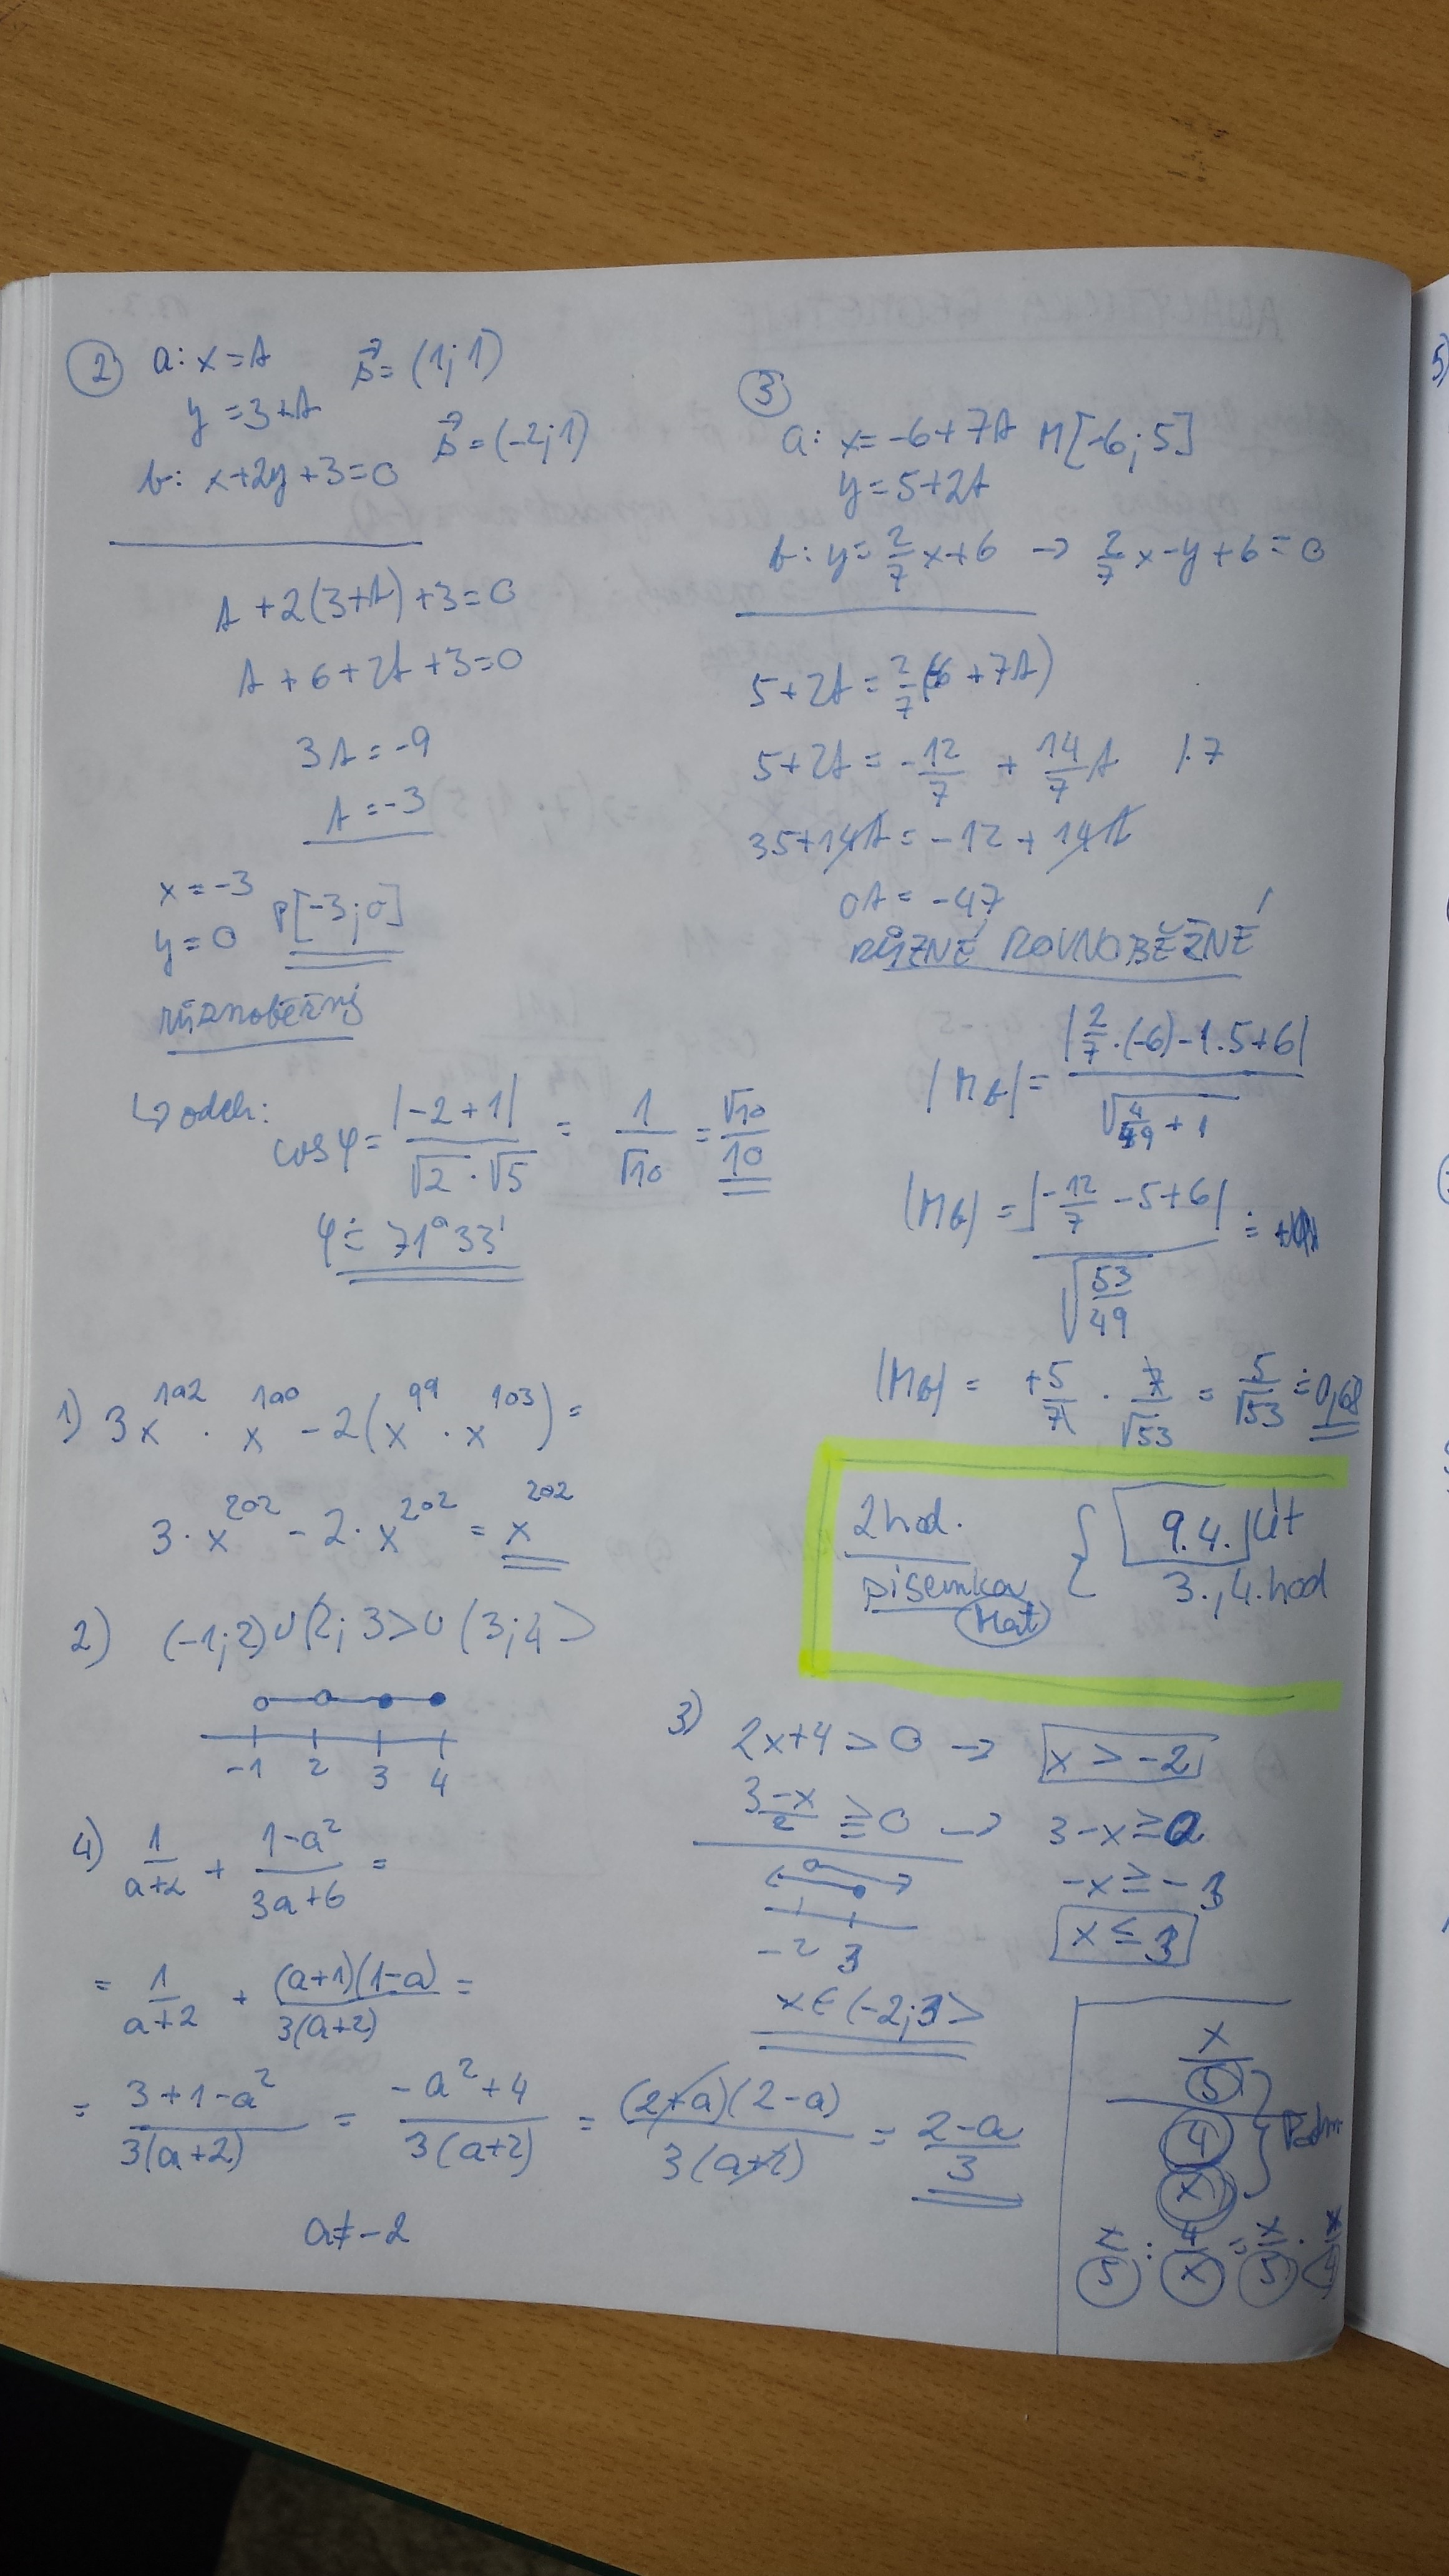 ②
a: x = t   s⃗ = (1; 1)
y = 3 + t
s⃗ = (-2; 1)
b: x+2y+3=0
t + 2(3+t) + 3 = 0
t + 6 + 2t + 3 = 0
3t = -9
t = -3
x = -3
y = 0   P[-3; 0]
různoběžný
↳ odch: cos φ = |-2+1| / √2 · √5 = 1/√10 = √10/10
φ ≐ 71°33'
③
a: x = -6 + 7t   M[-6; 5]
y = 5 + 2t
b: y = 2/7 x + 6 → 2/7 x - y + 6 = 0
5 + 2t = 2/7 (-6 + 7t)
5 + 2t = -12/7 + 14/7 t   /·7
35 + 14t = -12 + 14t
0t = -47
RŮZNÉ ROVNOBĚŽNÉ
|Mb| = |2/7 · (-6) - 1·5 + 6| / √(4/49 + 1)
|Mb| = |-12/7 - 5 + 6| / √(53/49) ≐
|Mb| = +5/7 · 7/√53 = 5/√53 ≐ 0,68
1) 3x¹⁰² · x¹⁰⁰ - 2(x⁹⁹ · x¹⁰³) =
3 · x²⁰² - 2 · x²⁰² = x²⁰²
2hod.
písemka
Mat
{ 9.4. Út
3., 4. hod
2) (-1; 2) ∪ (2; 3> ∪ (3; 4>
-1 2 3 4
3) 2x+4 > 0 → x > -2
3-x/2 ≥ 0 → 3-x ≥ 0
-x ≥ -3
x ≤ 3
-2 3
x ∈ (-2; 3>
4) 1/a+2 + 1-a²/3a+6 =
= 1/a+2 + (a+1)(1-a)/3(a+2) =
= 3+1-a²/3(a+2) = -a²+4/3(a+2) = (2+a)(2-a)/3(a+2) = 2-a/3
a ≠ -2
x/5
4/x
} Podm
x/5 : 4/x = x/5 · x/4